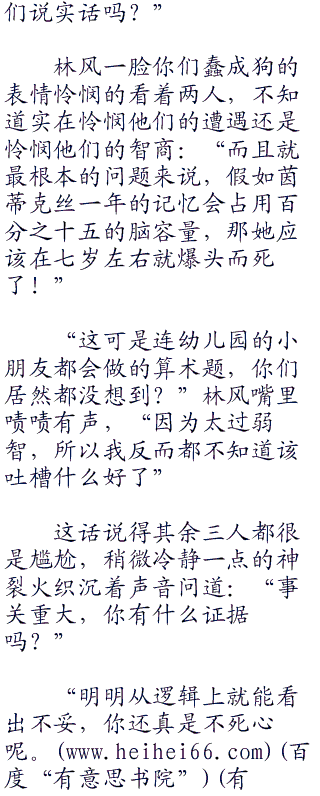 们说实话吗？”
林风一脸你们蠢成狗的
表情怜悯的看着两人，不知
道实在怜悯他们的遭遇还是
怜悯他们的智商：“而且就
最根本的问题来说，假如茵
蒂克丝一年的记忆会占用百
分之十五的脑容量，那她应
该在七岁左右就爆头而死
了！”
“这可是连幼儿园的小
朋友都会做的算术题，你们
居然都没想到？”林风嘴里
啧啧有声，“因为太过弱
智，所以我反而都不知道该
吐槽什么好了”
这话说得其余三人都很
是尴尬，稍微冷静一点的神
裂火织沉着声音问道：“事
关重大，你有什么证据
吗？”
“明明从逻辑上就能看
出不妥，你还真是不死心
呢。(www.heihei66.com)(百
度“有意思书院”)(有